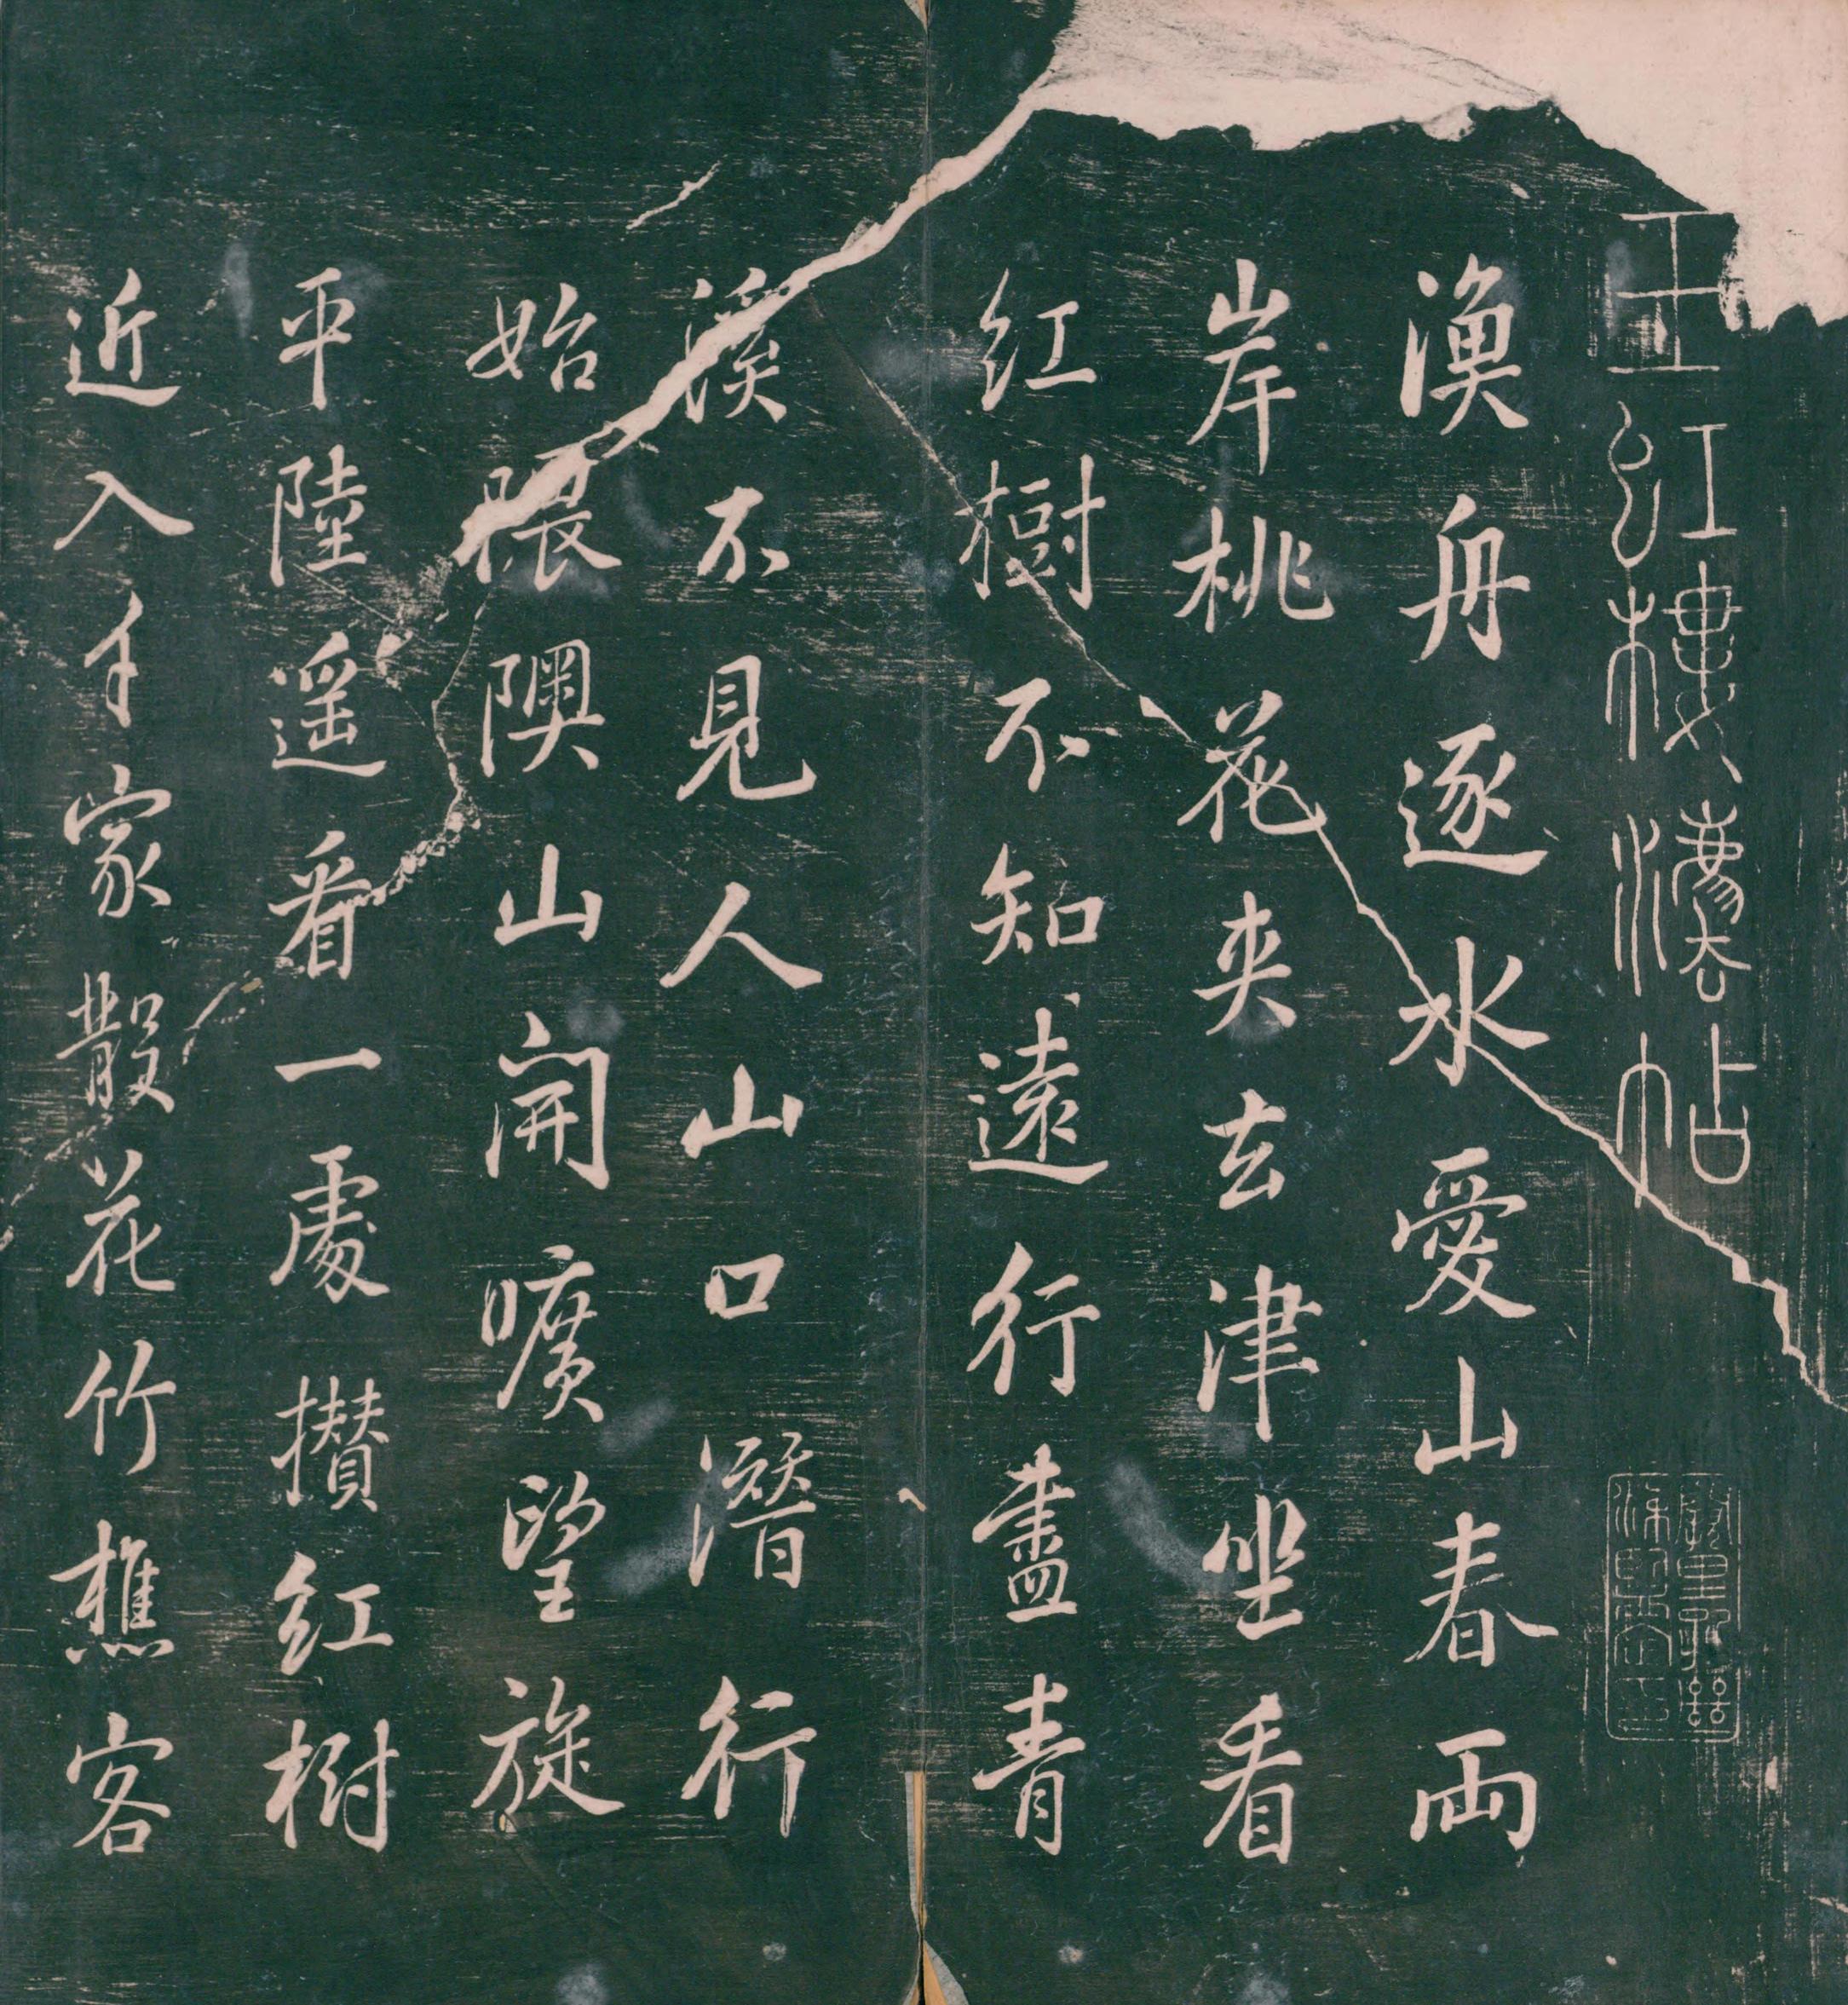 玉虹樓灋帖
漁舟逐水愛山春兩
岸桃花夾去津坐看
紅樹不知遠行盡青
溪不見人山口潛行
始隈隩山開曠望旋
平陸遥看一處攢紅樹
近入千家散花竹樵客